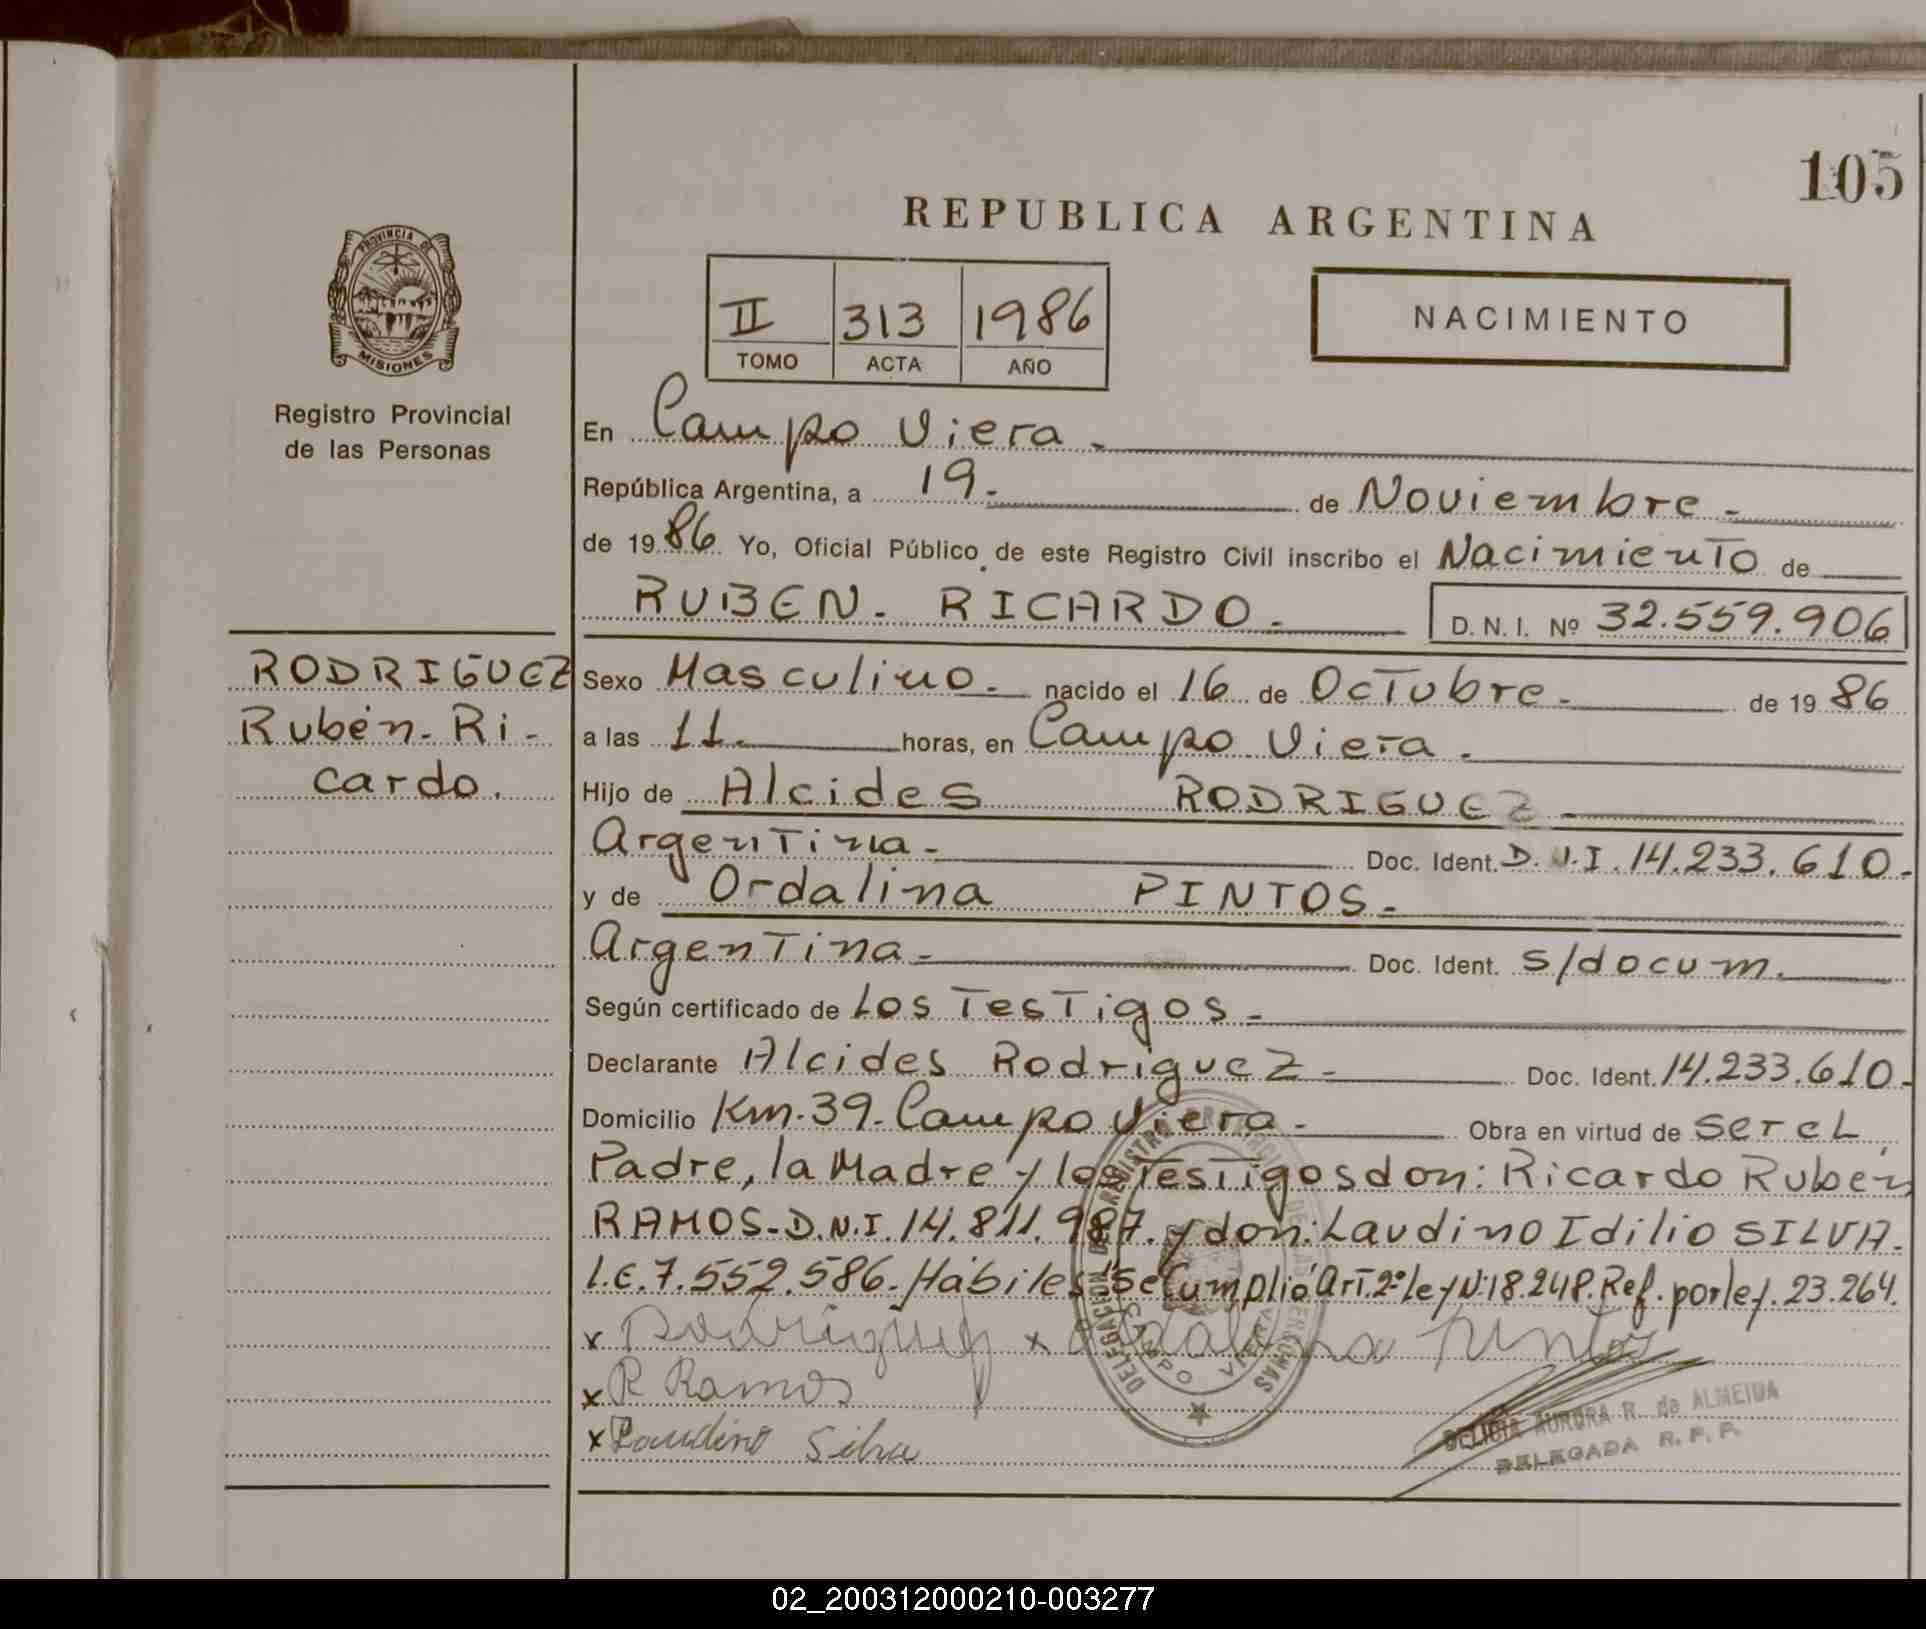 105
REPUBLICA ARGENTINA
PROVINCIA DE
MISIONES
Registro Provincial
de las Personas
II 313 1986
TOMO ACTA AÑO
NACIMIENTO
En Campo Viera.
República Argentina, a 19. de Noviembre.
de 1986 Yo, Oficial Público de este Registro Civil inscribo el Nacimiento de
RUBEN. RICARDO. D. N. I. Nº 32.559.906
RODRIGUEZ
Rubén. Ri-
cardo.
Sexo Masculino. nacido el 16 de Octubre. de 19 86
a las 11. horas, en Campo Viera.
Hijo de Alcides RODRIGUEZ
Argentina. Doc. Ident. D.N.I. 14.233.610.
y de Ordalina PINTOS.
Argentina. Doc. Ident. s/docum.
Según certificado de Los Testigos.
Declarante Alcides Rodriguez. Doc. Ident. 14.233.610.
Domicilio Km. 39. Campo Viera. Obra en virtud de ser el
Padre, la Madre y los Testigos don: Ricardo Rubén
RAMOS-D.N.I. 14.811.987. y don: Laudino Idilio SILVA.
L.E. 7.552.586. Hábiles "Se Cumplió Art. 2º ley Nº 18.248. Ref. por ley. 23.264.
x Rodriguez x Ordalina Pintos
x R Ramos
x Laudino Silva
DELEGACION DE REGISTRO PROVINCIAL DE LAS PERSONAS
CAMPO VIERA
DELICIA AURORA R. de ALMEIDA
DELEGADA R. P. P.
02_200312000210-003277